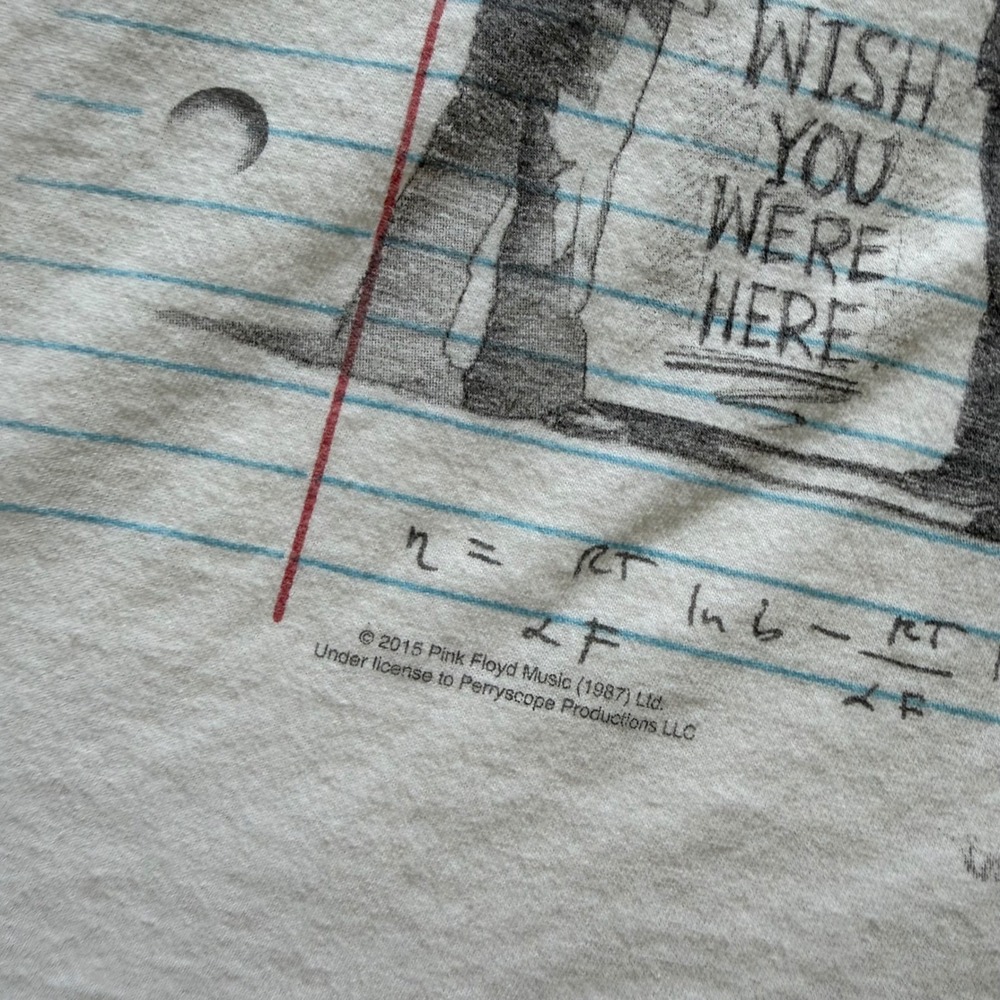 WISH
YOU
WERE
HERE.
η = RT ln b - RT
αF αF
© 2015 Pink Floyd Music (1987) Ltd.
Under license to Perryscope Productions LLC